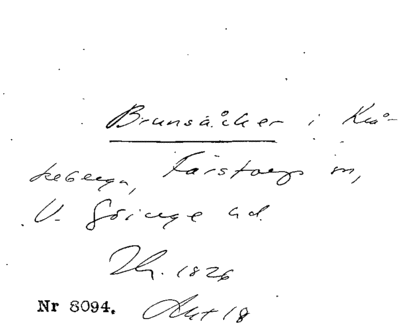 Brunsåcker i Krå-
keberga, Färstorps sn,
V. Göinge hd.
Lh. 1826
Nr 8094. Akt 18